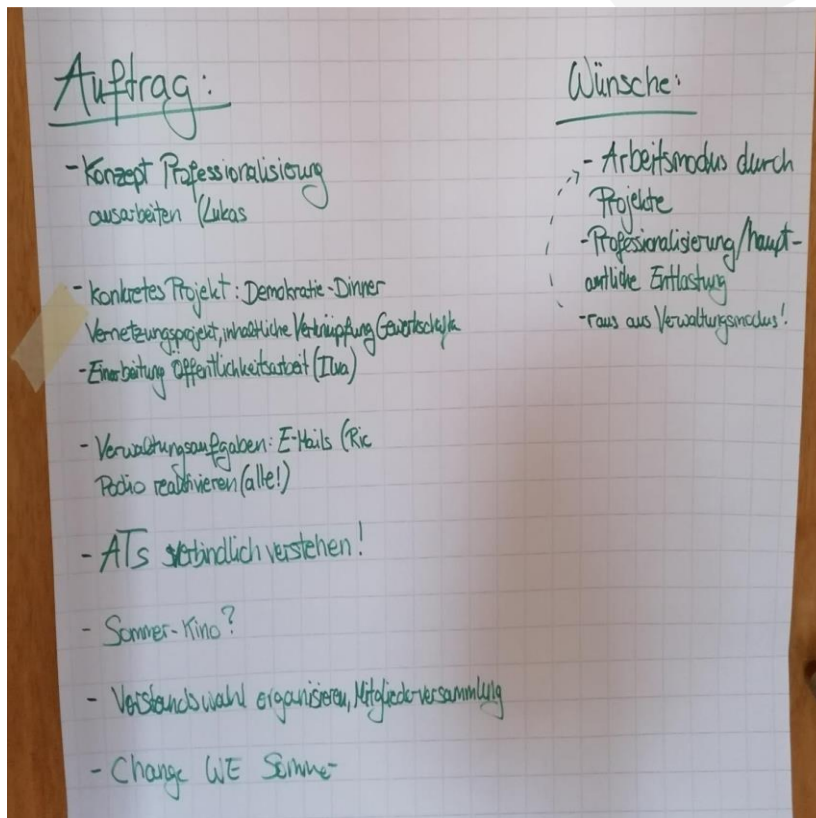 Auftrag:
- Konzept Professionalisierung
ausarbeiten (Lukas
- Konkretes Projekt: Demokratie-Dinner
Vernetzungsprojekt, inhaltliche Verknüpfung Gewerkschaften
- Einarbeitung Öffentlichkeitsarbeit (Ilva)
- Verwaltungsaufgaben: E-Mails (Ric
Podio reaktivieren (alle!)
- ATs verbindlich verstehen!
- Sommer-Kino?
- Vorstandswahl organisieren, Mitgliederversammlung
- Change WE Sommer
Wünsche:
- Arbeitsmodus durch
Projekte
- Professionalisierung/haupt-
amtliche Entlastung
- raus aus Verwaltungsmodus!